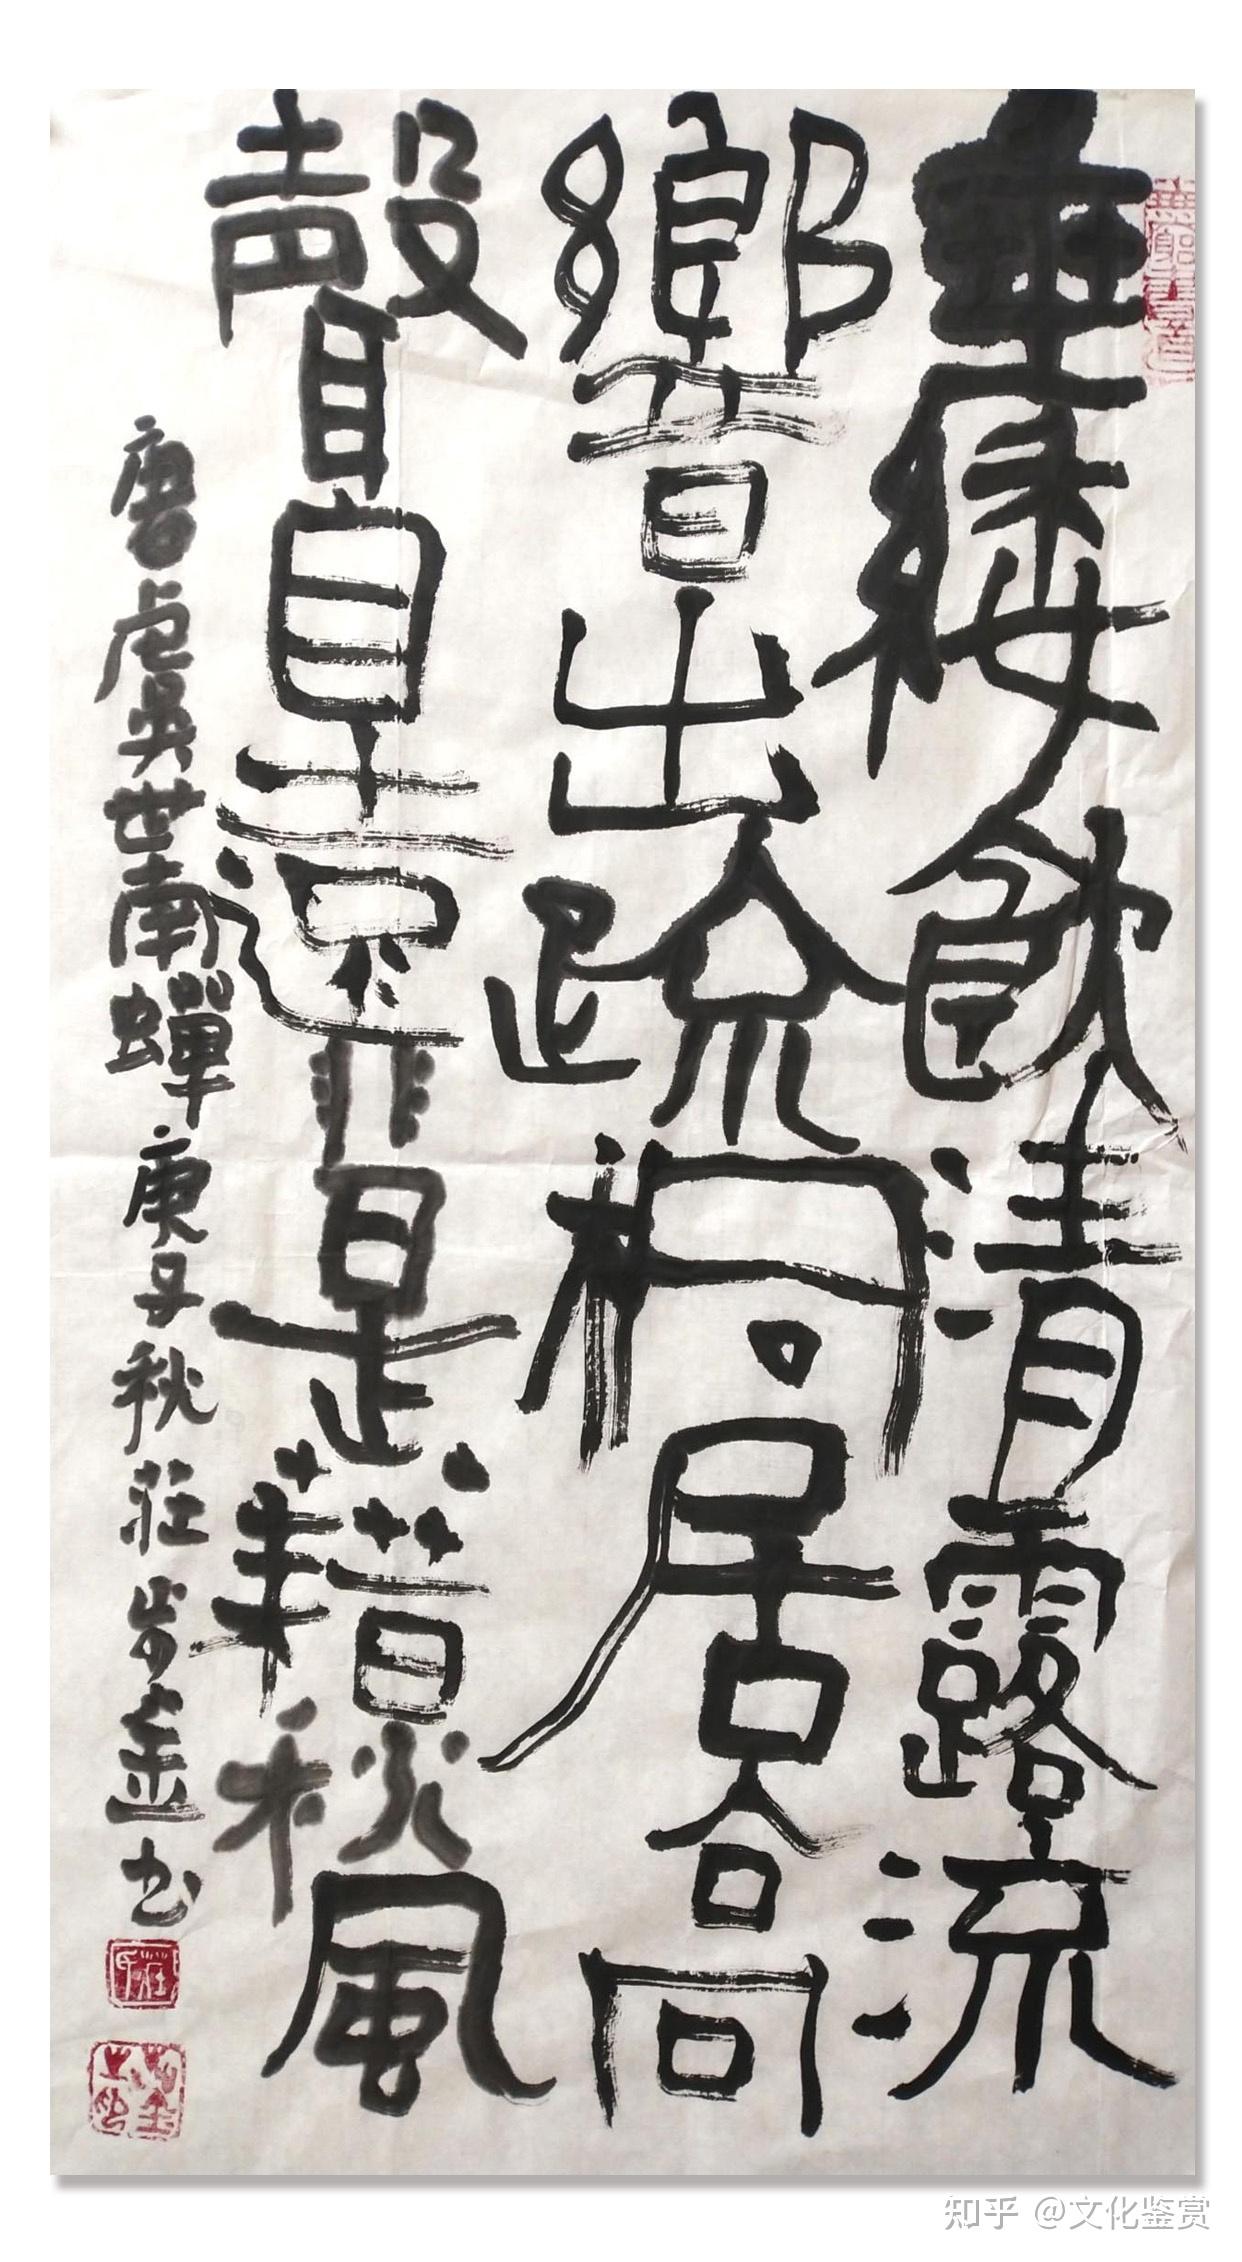 垂緌飲清露流
響出疏桐居高
聲自遠非是藉秋風
唐虞世南蟬庚子秋莊步金书
知乎 @文化鉴赏